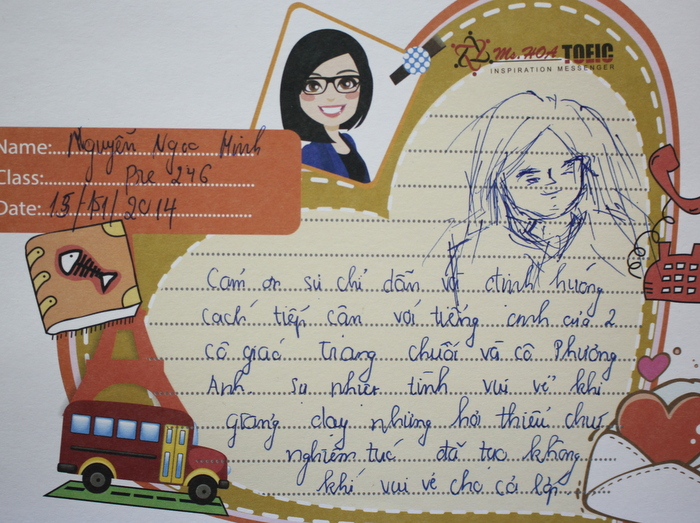 Ms. HOA TOEIC
INSPIRATION MESSENGER
Name: Nguyễn Ngọc Minh
Class: Pre 246
Date: 15/11/2014
Cám ơn sự chỉ dẫn và định hướng
cách tiếp cận với tiếng anh của 2
cô giáo Trang chuối và cô Phương
Anh. Sự nhiệt tình vui vẻ khi
giảng dạy nhưng hơi thiếu chút
nghiêm túc đã tạo không
khí vui vẻ cho cả lớp